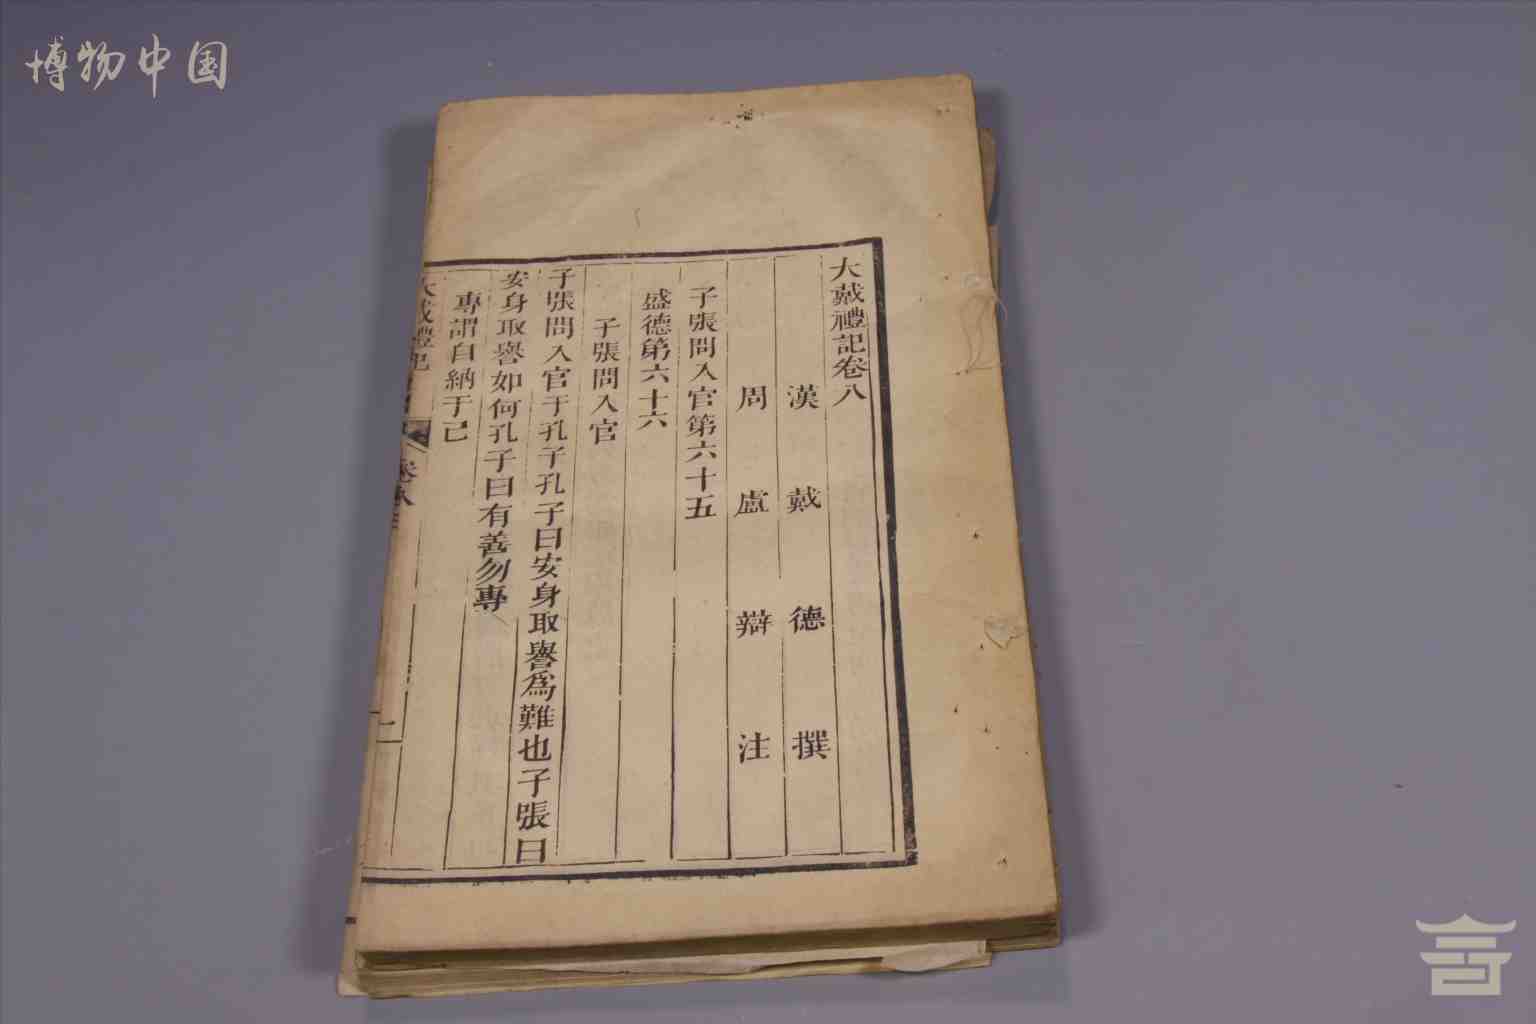 博物中国
大戴禮記卷八
漢戴德撰
周盧辯注
子張問入官第六十五
盛德第六十六
子張問入官
子張問入官于孔子孔子曰安身取譽爲難也子張曰
安身取譽如何孔子曰有善勿專
專謂自納于己
大戴禮記
卷八